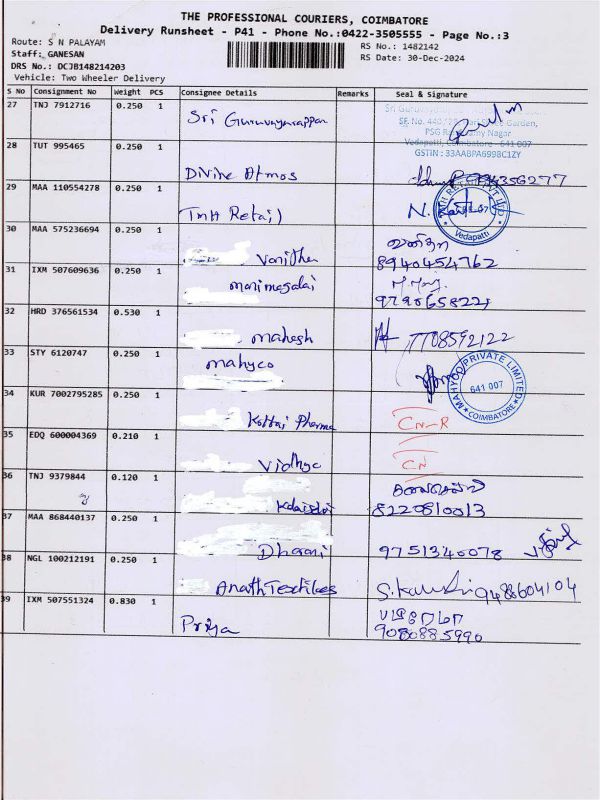 THE PROFESSIONAL COURIERS, COIMBATORE
Delivery Runsheet - P41 - Phone No.:0422-3505555 - Page No.:3
Route: S N PALAYAM
RS No.: 1482142
Staff: GANESAN
RS Date: 30-Dec-2024
DRS No.: DCJB148214203
Vehicle: Two Wheeler Delivery
S No Consignment No Weight PCS Consignee Details Remarks Seal & Signature
27 TNJ 7912716 0.250 1
Sri Guruvayurappan
SF. No. 440,
Garden,
PSG
Nagar
Vedapatti, Coimbatore - 641 007
GSTIN : 33AABPA6998C1ZY
28 TUT 995465 0.250 1
Divine Atmos
29 MAA 110554278 0.250 1
TMH Retail
Vedapatti
30 MAA 575236694 0.250 1
Vanitha வனிதா
8940454762
31 IXM 507609636 0.250 1
manimegalai
9790658221
32 HRD 376561534 0.530 1
mahesh 7708592122
33 STY 6120747 0.250 1
mahyco
MAHYCO PRIVATE LIMITED
641 007
COIMBATORE
34 KUR 7002795285 0.250 1
Kottai Pharma CN-R
35 EDQ 600004369 0.210 1
Vidhya CN
36 TNJ 9379844 0.120 1
கலைச்செல்வி
8220810013
37 MAA 868440137 0.250 1
Dharani 9751340078
38 NGL 100212191 0.250 1
Ananth Textiles 9488604104
39 IXM 507551324 0.830 1
Priya
9080885990